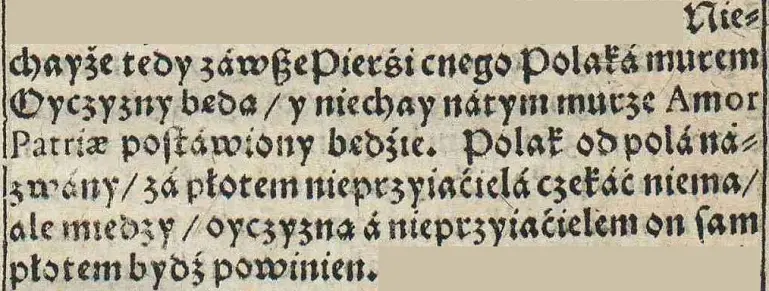 Nie⸗
chayże tedy záwße Pierśi cnego Polaká murem
Oyczyzny beda / y niechay ná tym murze Amor
Patriæ poſtáwiony bedźie. Polak od polá ná⸗
zwány / zá płotem nieprzyiaćielá czekáć niema /
ale miedzy / oyczyzna á nieprzyiaćielem on ſam
płotem bydź powinien.